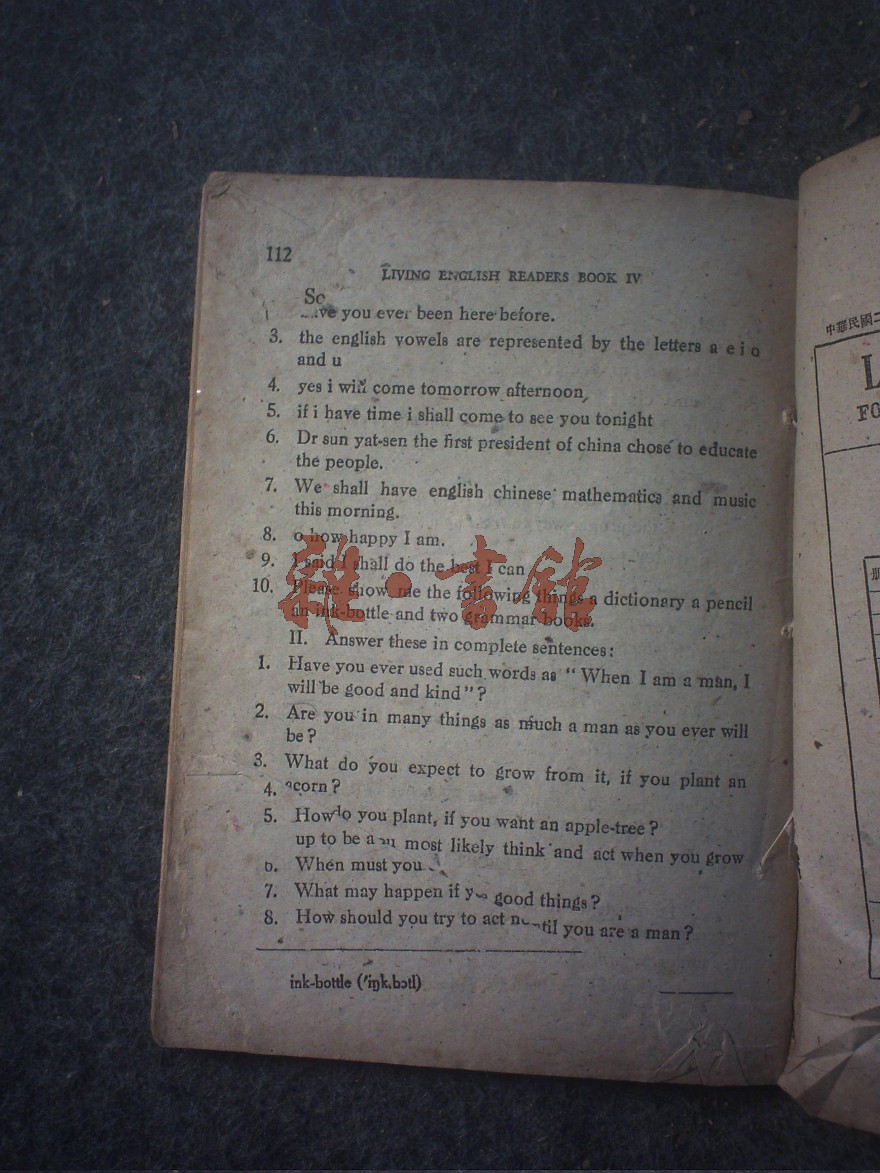 112
LIVING ENGLISH READERS BOOK IV
So
you ever been here before.
3. the english vowels are represented by the letters a e i o
and u
4. yes i will come tomorrow afternoon
5. if i have time i shall come to see you tonight
6. Dr sun yat-sen the first president of china chose to educate
the people.
7. We shall have english chinese mathematics and music
this morning.
8. o how happy I am.
9. I said I shall do the best I can
10. Please show me the following things a dictionary a pencil
an ink-bottle and two grammar books.
雜·書館
II. Answer these in complete sentences:
1. Have you ever used such words as "When I am a man, I
will be good and kind"?
2. Are you in many things as much a man as you ever will
be?
3. What do you expect to grow from it, if you plant an
4. acorn?
5. How do you plant, if you want an apple-tree?
up to be a most likely think and act when you grow
When must you
7. What may happen if good things?
8. How should you try to act you are a man?
ink-bottle ('iŋk,bɔtl)
中華民國二
L
FO
册